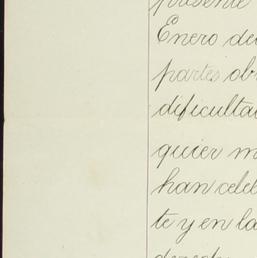 presente
Enero de
partes ob
dificulta
quier m
han cele
te y en la